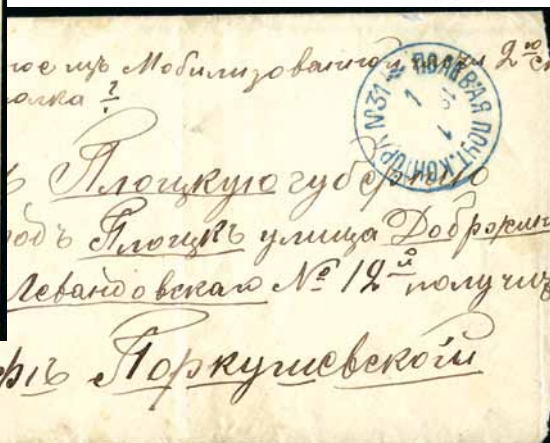 ное изъ Мобилизованной 2го
полка
ПОЛЕВАЯ ПОЧТ. КОНТОРА №31
1
въ Плоцкую губернію
родъ Плоцкъ улица Добржин
Левандовскаго № 12й получить
Поркушевской